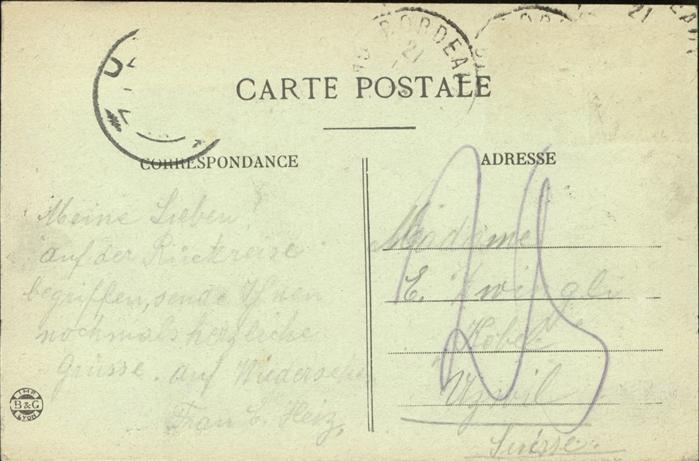 BORDEAUX
21
21
CARTE POSTALE
CORRESPONDANCE
ADRESSE
Meine Lieben
auf der Rückreise
begriffen, sende Ihnen
nochmals herzliche
Grüsse. Auf Wiedersehen
Frau E. Heiz,
Madame
E. Zwingli
Uzwil
Suisse.
IMP.
B&G
LYON